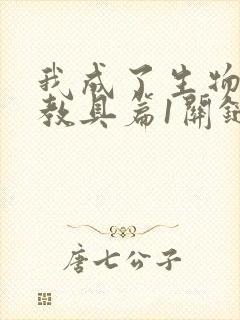 我成了生物
教具篇1關
唐七公子